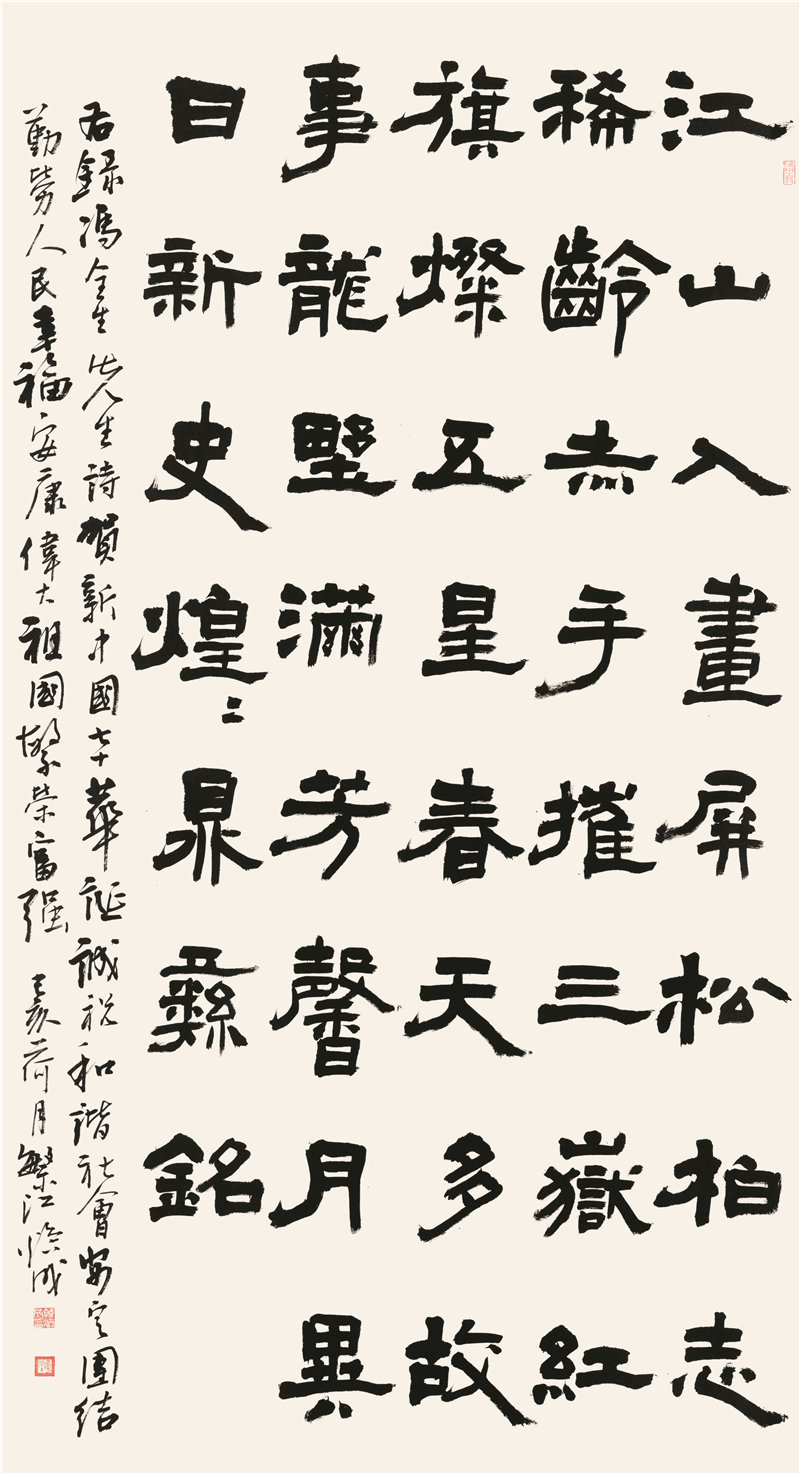 江山入畫屏松柏志
稀齡赤手摧三嶽紅
旗燦五星春天多故
事龍墅滿芳馨月異
日新史煌〻鼎彝銘
右録馮全生先生詩賀新中國七十華誕誠祝和諧社會安定團結
勤勞人民幸福安康偉大祖國繁榮富强 己亥荷月繁江